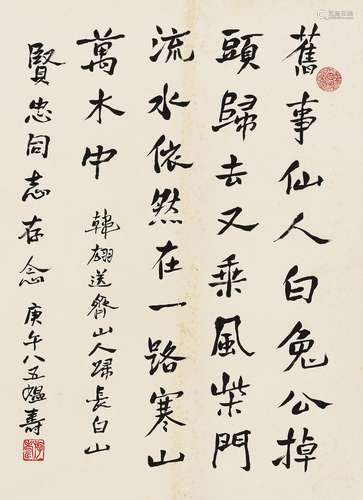 舊事仙人白兔公掉
頭歸去又乘風柴門
流水依然在一路寒山
萬木中
韓翃送齊山人歸長白山
賢忠同志存念
庚午八五媪壽